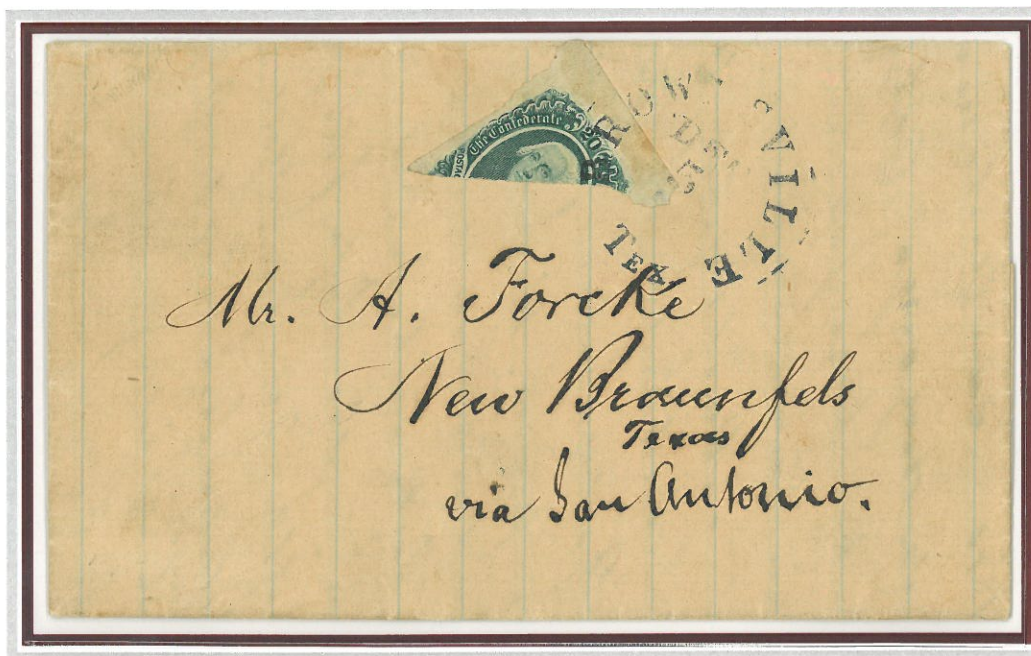 The Confederate
20
POSTA
BROW VILLE
DE
TEX
Mr. A. Forcke
New Braunfels
Texas
via San Antonio.